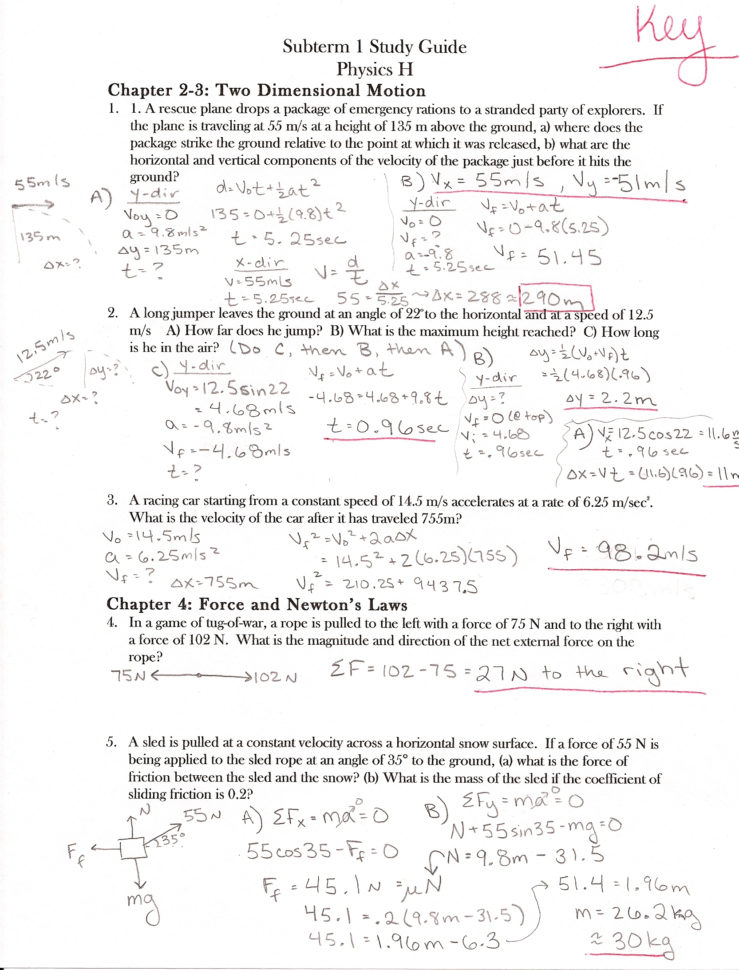 Key
Subterm 1 Study Guide
Physics H
Chapter 2-3: Two Dimensional Motion
1. 1. A rescue plane drops a package of emergency rations to a stranded party of explorers. If
the plane is traveling at 55 m/s at a height of 135 m above the ground, a) where does the
package strike the ground relative to the point at which it was released, b) what are the
horizontal and vertical components of the velocity of the package just before it hits the
ground?
55m/s
135m
Δx=?
A) y-dir
V₀y=0
a=9.8m/s²
Δy=135m
t=?
d=V₀t+½at²
135=0+½(9.8)t²
t=5.25sec
x-dir
V=55m/s
t=5.25sec
V=d/t
55=Δx/5.25→Δx=288≈290m
B) Vx=55m/s, Vy=-51m/s
y-dir
V₀=0
Vf=?
a=-9.8
t=5.25sec
Vf=V₀+at
Vf=0-9.8(5.25)
Vf=51.45
2. A long jumper leaves the ground at an angle of 22° to the horizontal and at a speed of 12.5
m/s A) How far does he jump? B) What is the maximum height reached? C) How long
is he in the air? (Do C, then B, then A)
12.5m/s
22°
Δy=?
Δx=?
t=?
C) y-dir
V₀y=12.5sin22
=4.68m/s
a=-9.8m/s²
Vf=-4.68m/s
t=?
Vf=V₀+at
-4.68=4.68+9.8t
t=0.96sec
B)
y-dir
Δy=?
Vf=0(@top)
Vi=4.68
t=.96sec
Δy=½(V₀+Vf)t
=½(4.68)(.96)
Δy=2.2m
A) Vx=12.5cos22=11.6m/s
t=.96sec
Δx=Vt=(11.6)(.96)=11m
3. A racing car starting from a constant speed of 14.5 m/s accelerates at a rate of 6.25 m/sec².
What is the velocity of the car after it has traveled 755m?
V₀=14.5m/s
a=6.25m/s²
Vf=? Δx=755m
Vf²=V₀²+2aΔx
=14.5²+2(6.25)(755)
Vf²=210.25+9437.5
Vf=98.2m/s
Chapter 4: Force and Newton's Laws
4. In a game of tug-of-war, a rope is pulled to the left with a force of 75 N and to the right with
a force of 102 N. What is the magnitude and direction of the net external force on the
rope?
75N←→102N
ΣF=102-75=27N to the right
5. A sled is pulled at a constant velocity across a horizontal snow surface. If a force of 55 N is
being applied to the sled rope at an angle of 35° to the ground, (a) what is the force of
friction between the sled and the snow? (b) What is the mass of the sled if the coefficient of
sliding friction is 0.2?
N
55N
35°
Ff
mg
A) ΣFx=ma=0
55cos35-Ff=0
Ff=45.1N=μN
45.1=.2(9.8m-31.5)
45.1=1.96m-6.3
B) ΣFy=ma=0
N+55sin35-mg=0
N=9.8m-31.5
51.4=1.96m
m=26.2kg
≈30kg